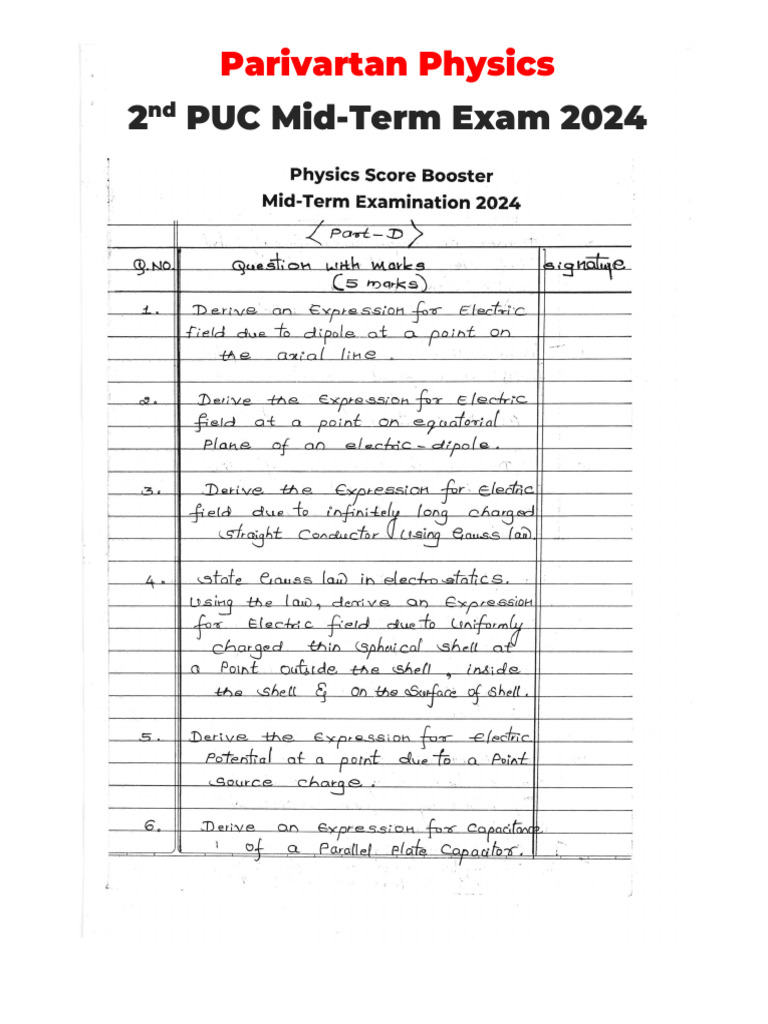 Parivartan Physics
2nd PUC Mid-Term Exam 2024
Physics Score Booster
Mid-Term Examination 2024
<Part-D>
Q.NO. Question with marks signature
(5 marks)
1. Derive an Expression for Electric
field due to dipole at a point on
the axial line.
2. Derive the Expression for Electric
field at a point on equatorial
Plane of an electric-dipole.
3. Derive the Expression for Electric
field due to infinitely long charged
straight Conductor Using Gauss law.
4. State Gauss law in electrostatics.
Using the law, derive an Expression
for Electric field due to Uniformly
charged thin Spherical Shell at
a Point outside the shell, inside
the shell & on the Surface of Shell.
5. Derive the Expression for Electric
Potential at a point due to a Point
source charge.
6. Derive an Expression for Capacitance
of a Parallel Plate Capacitor.